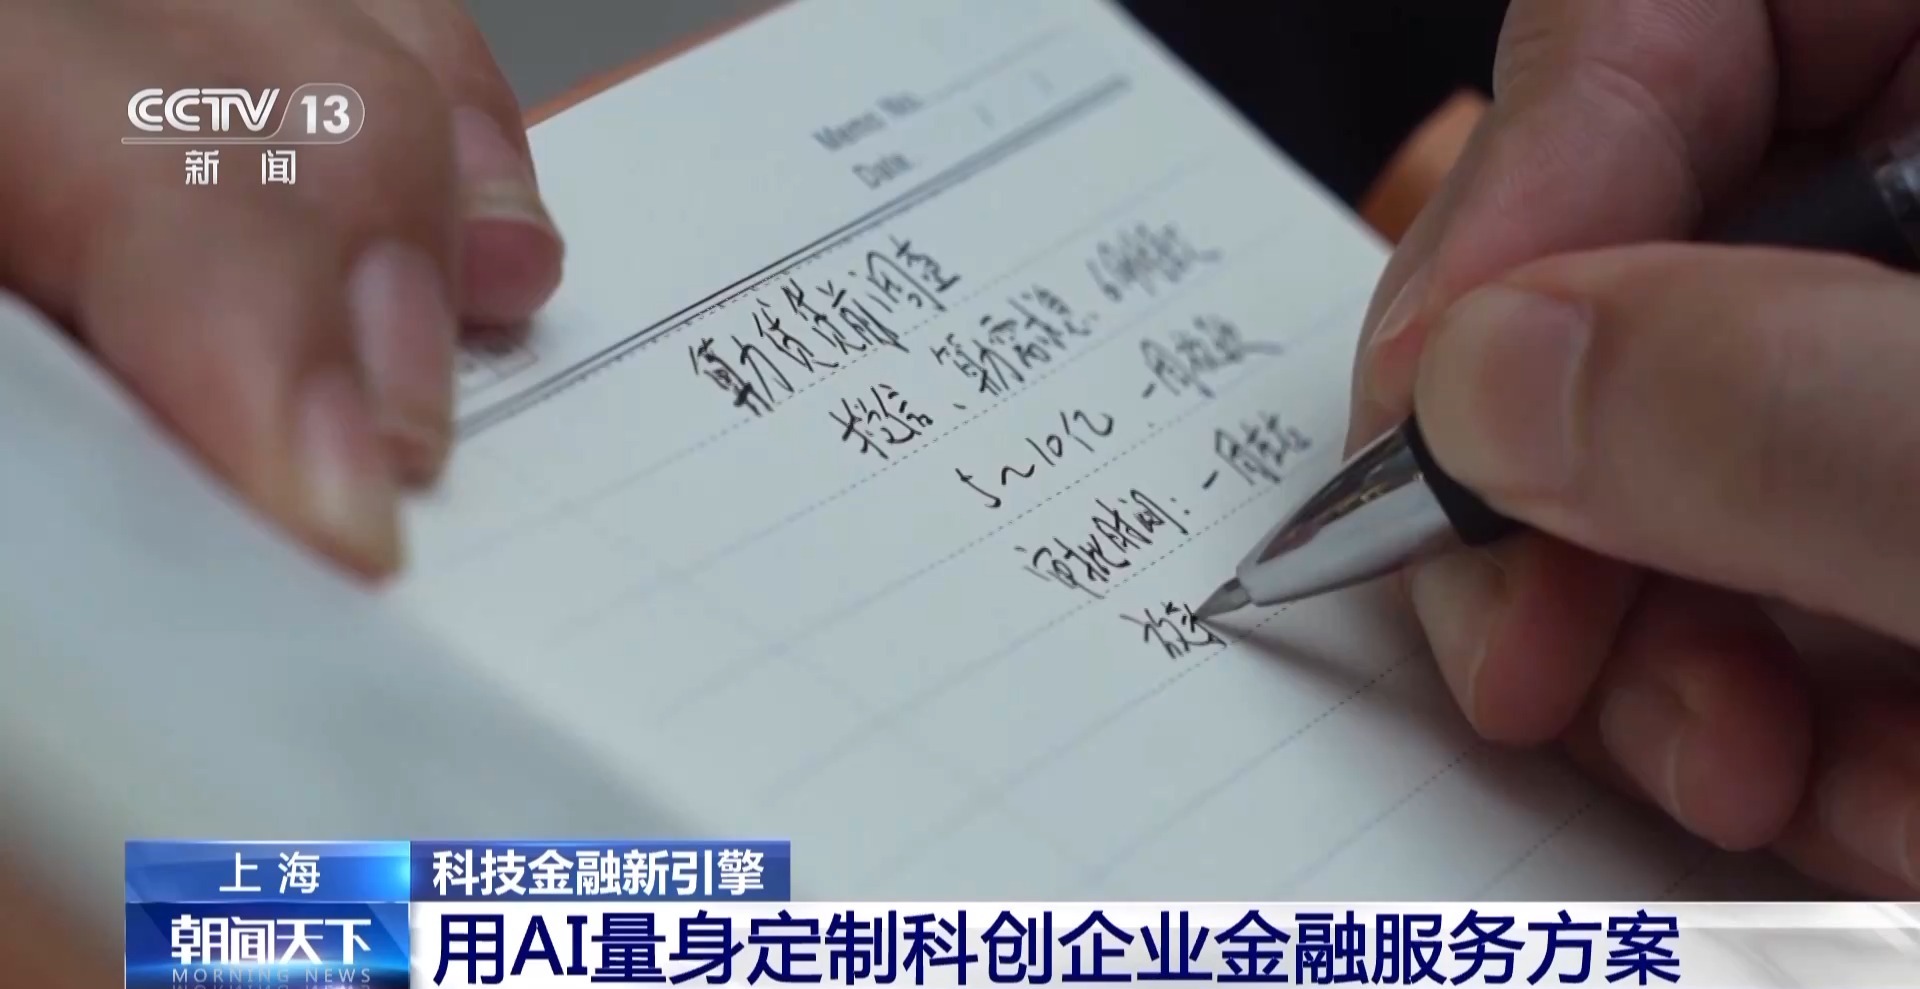 CCTV 13
新闻
Memo No.
Date
算力贷贷前调查
授信、算力需求
5~10亿 一周
审批时间:一周左右
放
上海
科技金融新引擎
朝闻天下
MORNING NEWS
用AI量身定制科创企业金融服务方案